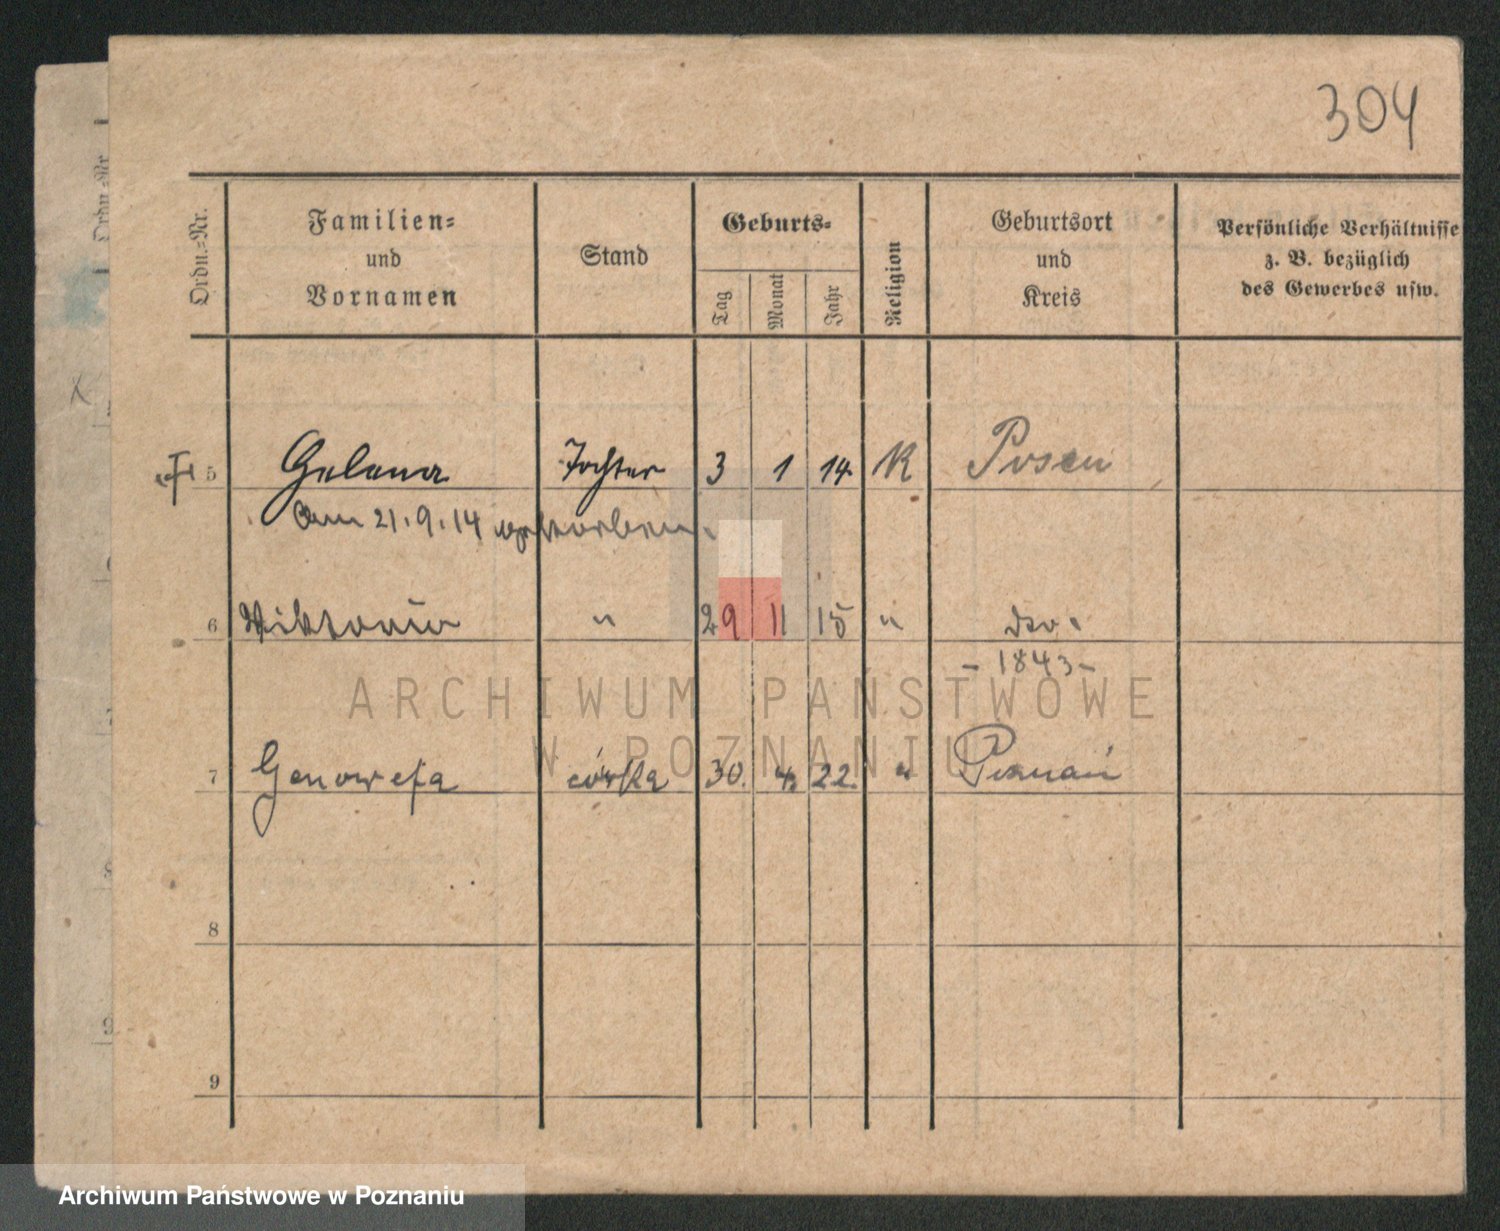 304
Ordn.=Nr.
Familien=
und
Vornamen
Stand
Geburts=
Tag
Monat
Jahr
Religion
Geburtsort
und
Kreis
Persönliche Verhältnisse
z. B. bezüglich
des Gewerbes usw.
5 Helena Tochter 3 1 14 K Posen
Am 21.9.14 verstorben.
6 Wiktoria " 29 11 15 " dto.
- 1843 -
ARCHIWUM PAŃSTWOWE
W POZNANIU
7 Genowefa córka 30. 4. 22. " Poznań
8
9
Ordn.=Nr.
9
Archiwum Państwowe w Poznaniu